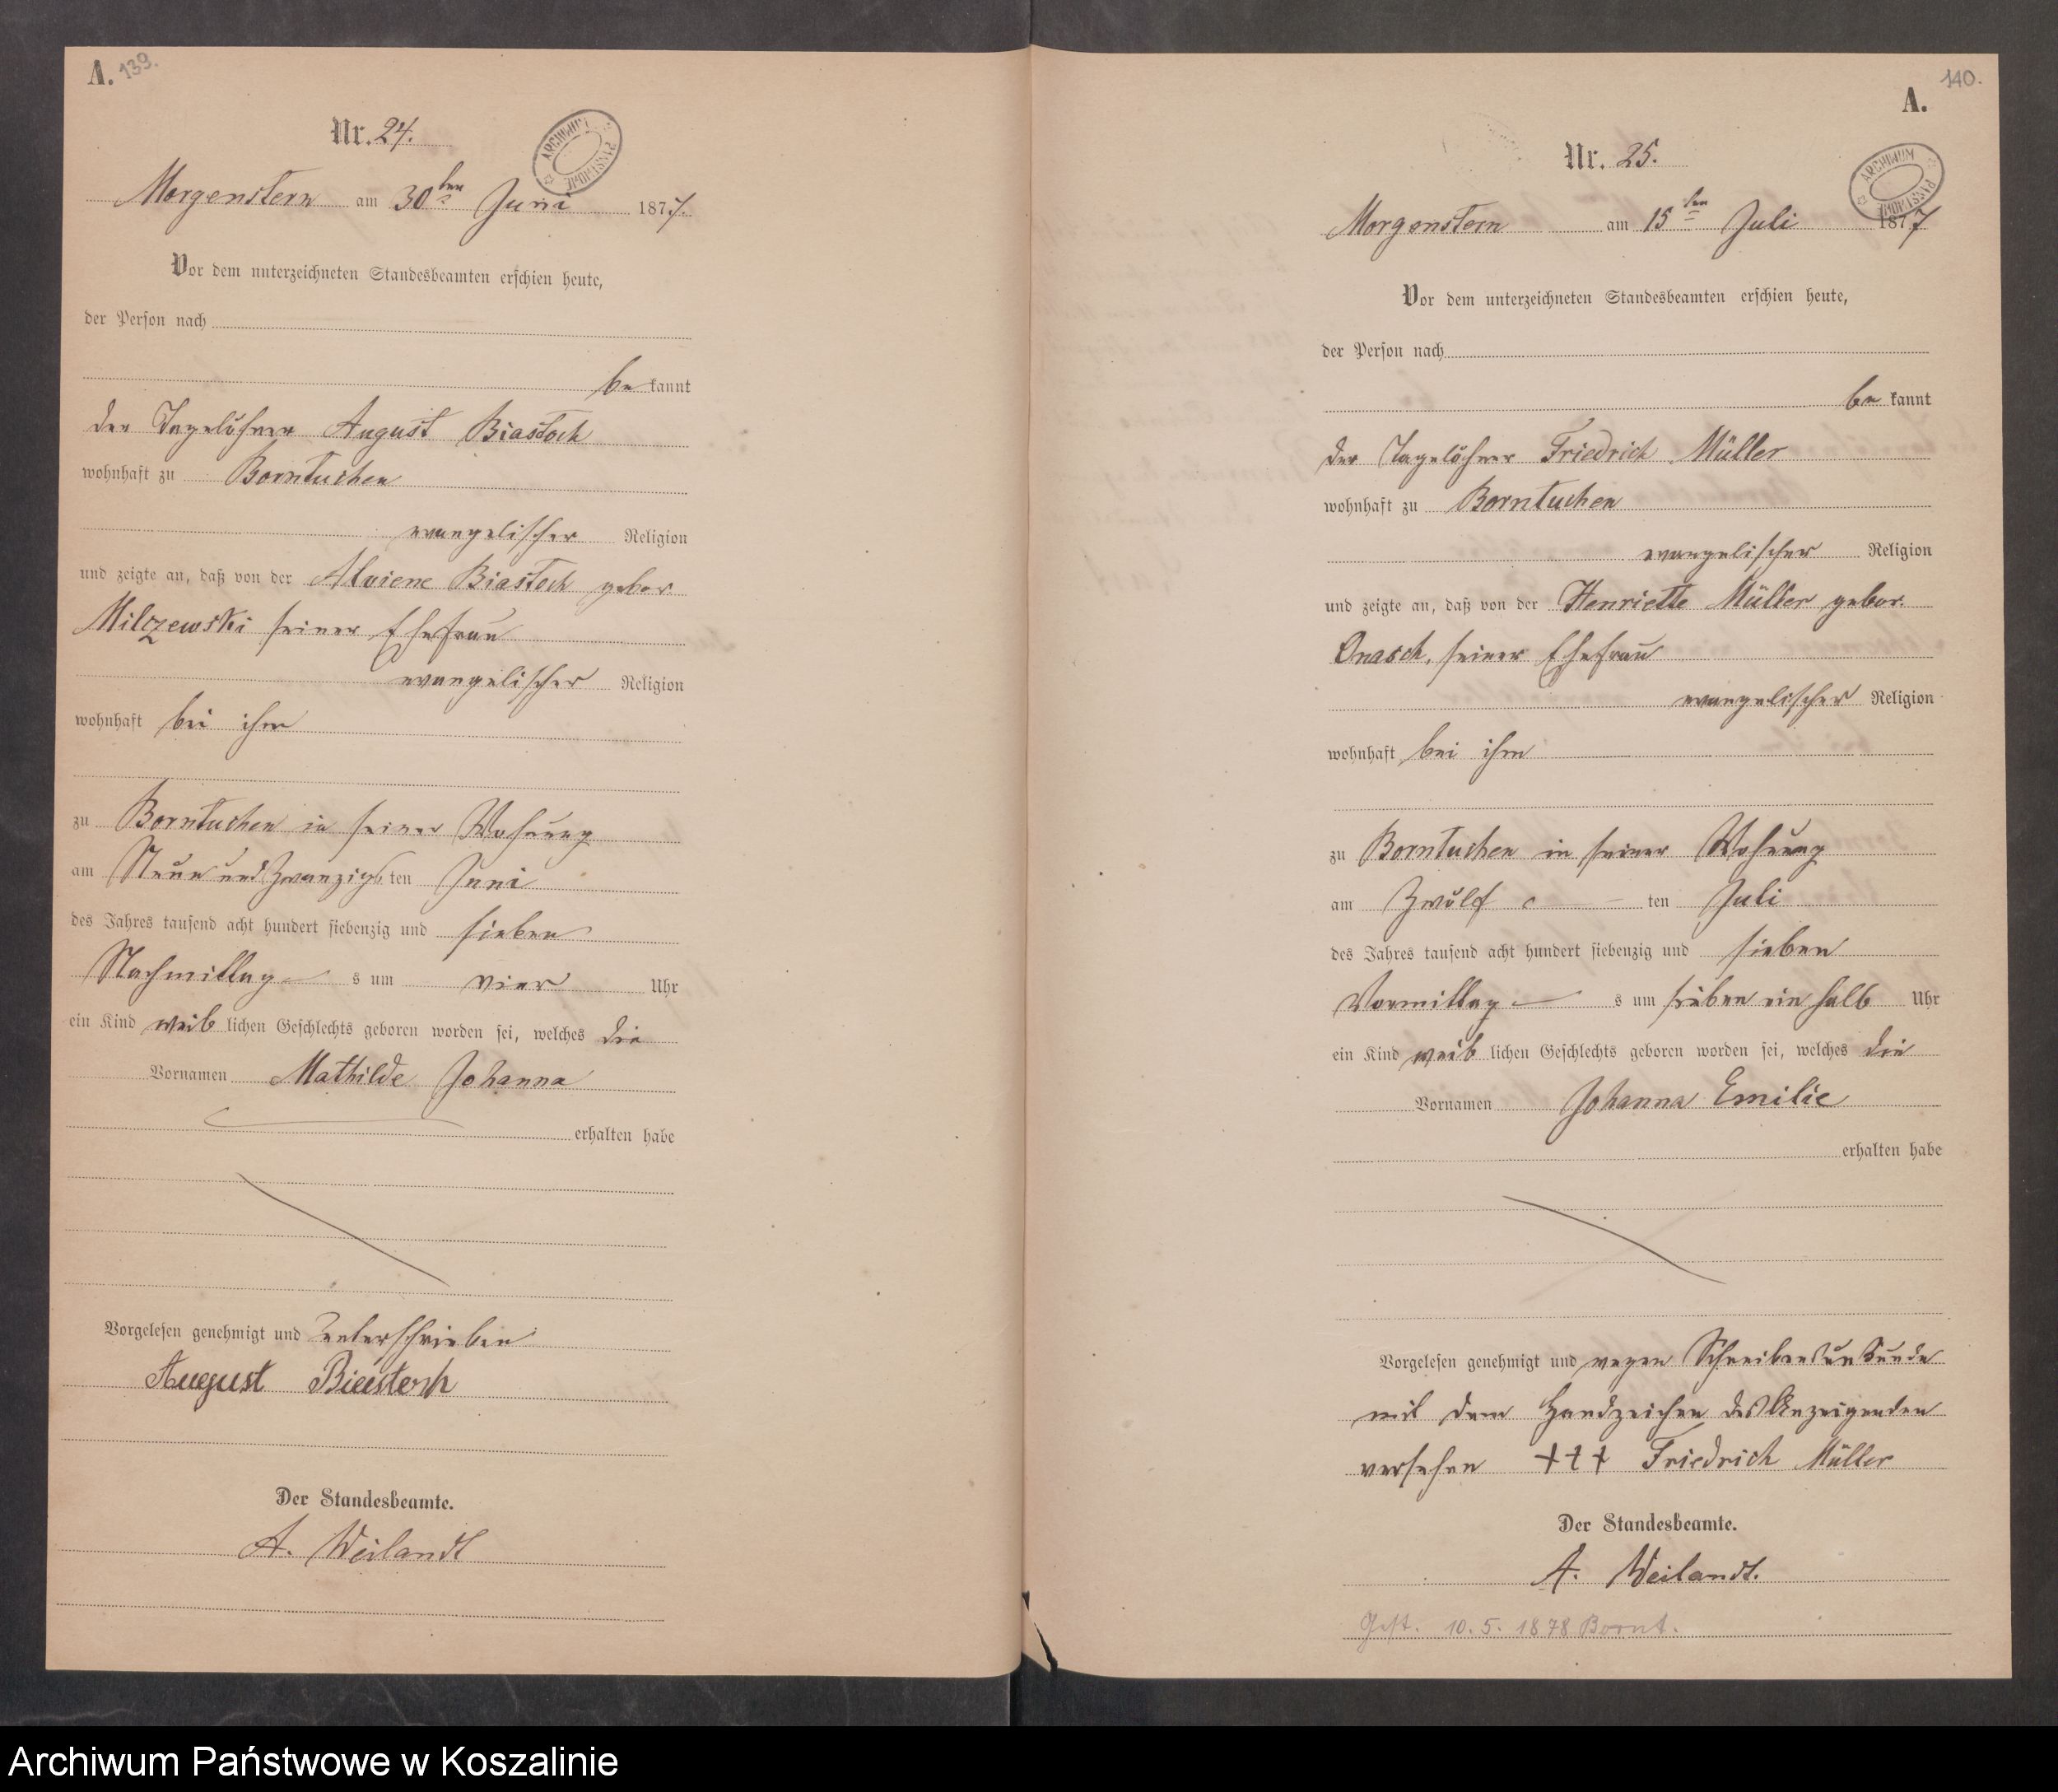 A. 139.
Nr. 24.
ARCHIWUM PAŃSTWOWE
Morgenstern am 30ten Juni 1877.
Vor dem unterzeichneten Standesbeamten erschien heute,
der Person nach
be kannt
der Tagelöhner August Biastock
wohnhaft zu Borntuchen
evangelischer Religion
und zeigte an, daß von der Alviene Biastock gebor
Milczewski seiner Ehefrau
evangelischer Religion
wohnhaft bei ihm
zu Borntuchen in seiner Wohnung
am Neun und Zwanzigs ten Juni
des Jahres tausend acht hundert siebenzig und sieben
Nachmittag s um vier Uhr
ein Kind weib lichen Geschlechts geboren worden sei, welches die
Vornamen Mathilde Johanna
erhalten habe
Vorgelesen genehmigt und unterschrieben
August Biastock
Der Standesbeamte.
A. Weilandt
140.
A.
Nr. 25.
ARCHIWUM PAŃSTWOWE
Morgenstern am 15ten Juli 1877
Vor dem unterzeichneten Standesbeamten erschien heute,
der Person nach
be kannt
der Tagelöhner Friedrich Müller
wohnhaft zu Borntuchen
evangelischer Religion
und zeigte an, daß von der Henriette Müller gebor.
Onasch, seiner Ehefrau
evangelischer Religion
wohnhaft bei ihm
zu Borntuchen in seiner Wohnung
am Zwölf ten Juli
des Jahres tausend acht hundert siebenzig und sieben
Vormittag s um sieben ein halb Uhr
ein Kind weib lichen Geschlechts geboren worden sei, welches die
Vornamen Johanna Emilie
erhalten habe
Vorgelesen genehmigt und wegen Schreibensunkunde
mit dem Handzeichen des Anzeigenden
versehen +++ Friedrich Müller
Der Standesbeamte.
A. Weilandt.
Gest. 10. 5. 1878 Bornt.
Archiwum Państwowe w Koszalinie